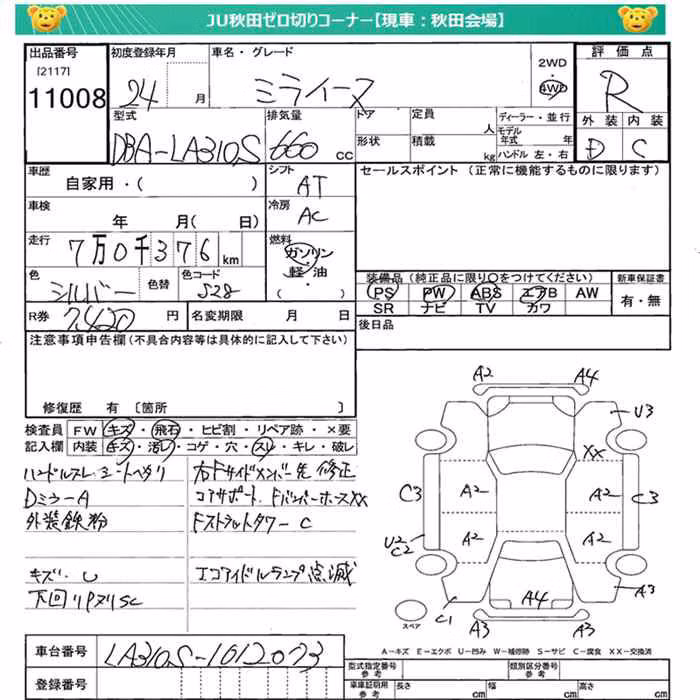 JU秋田ゼロ切りコーナー【現車：秋田会場】
出品番号 [2117] 11008
初度登録年月 24 月
車名・グレード ミライース
2WD 4WD
評価点 R
型式 DBA-LA310S
排気量 660 cc
ドア 形状
定員 人
積載 kg
ディーラー・並行
モデル年式 年
ハンドル 左・右
外装 D
内装 C
車歴 自家用・( )
シフト AT
セールスポイント (正常に機能するものに限ります)
車検 年 月( 日)
冷房 AC
走行 7万0千376 km
燃料 ガソリン・軽油 ( )
色 シルバー 色替 色コード S28
装備品 (純正品に限り○をつけてください)
PS PW ABS エアB AW
SR ナビ TV カワ
新車保証書 有・無
R券 7,420 円
名変期限 月 日
後日品
注意事項申告欄 (不具合内容等は具体的に記入して下さい)
修復歴 有 [箇所 ]
検査員記入欄
FW キズ・飛石・ヒビ割・リペア跡・×要
内装 キズ・汚レ・コゲ・穴・スレ・キレ・破レ
ハンドルスレ シートヘタリ
Dミラー A
外装鉄粉
キズ・U
下回りPヌリSC
右Fサイドメンバー先 修正
コアサポート Fバンパーホース XX
Fストラットタワー C
エコアイドルランプ点滅
A2 A4
U3
XX
C3 A2 A2 C3
U2 C2 A2 A2
A4 A3
C1
スペア A3 A3
A-キズ E-エクボ U-凹み W-補修跡 S-サビ C-腐食 XX-交換済
車台番号 LA310S-1012073
登録番号
型式指定番号 類別区分番号
参考 参考
車庫証明用 参考 長さ cm 幅 cm 高さ cm